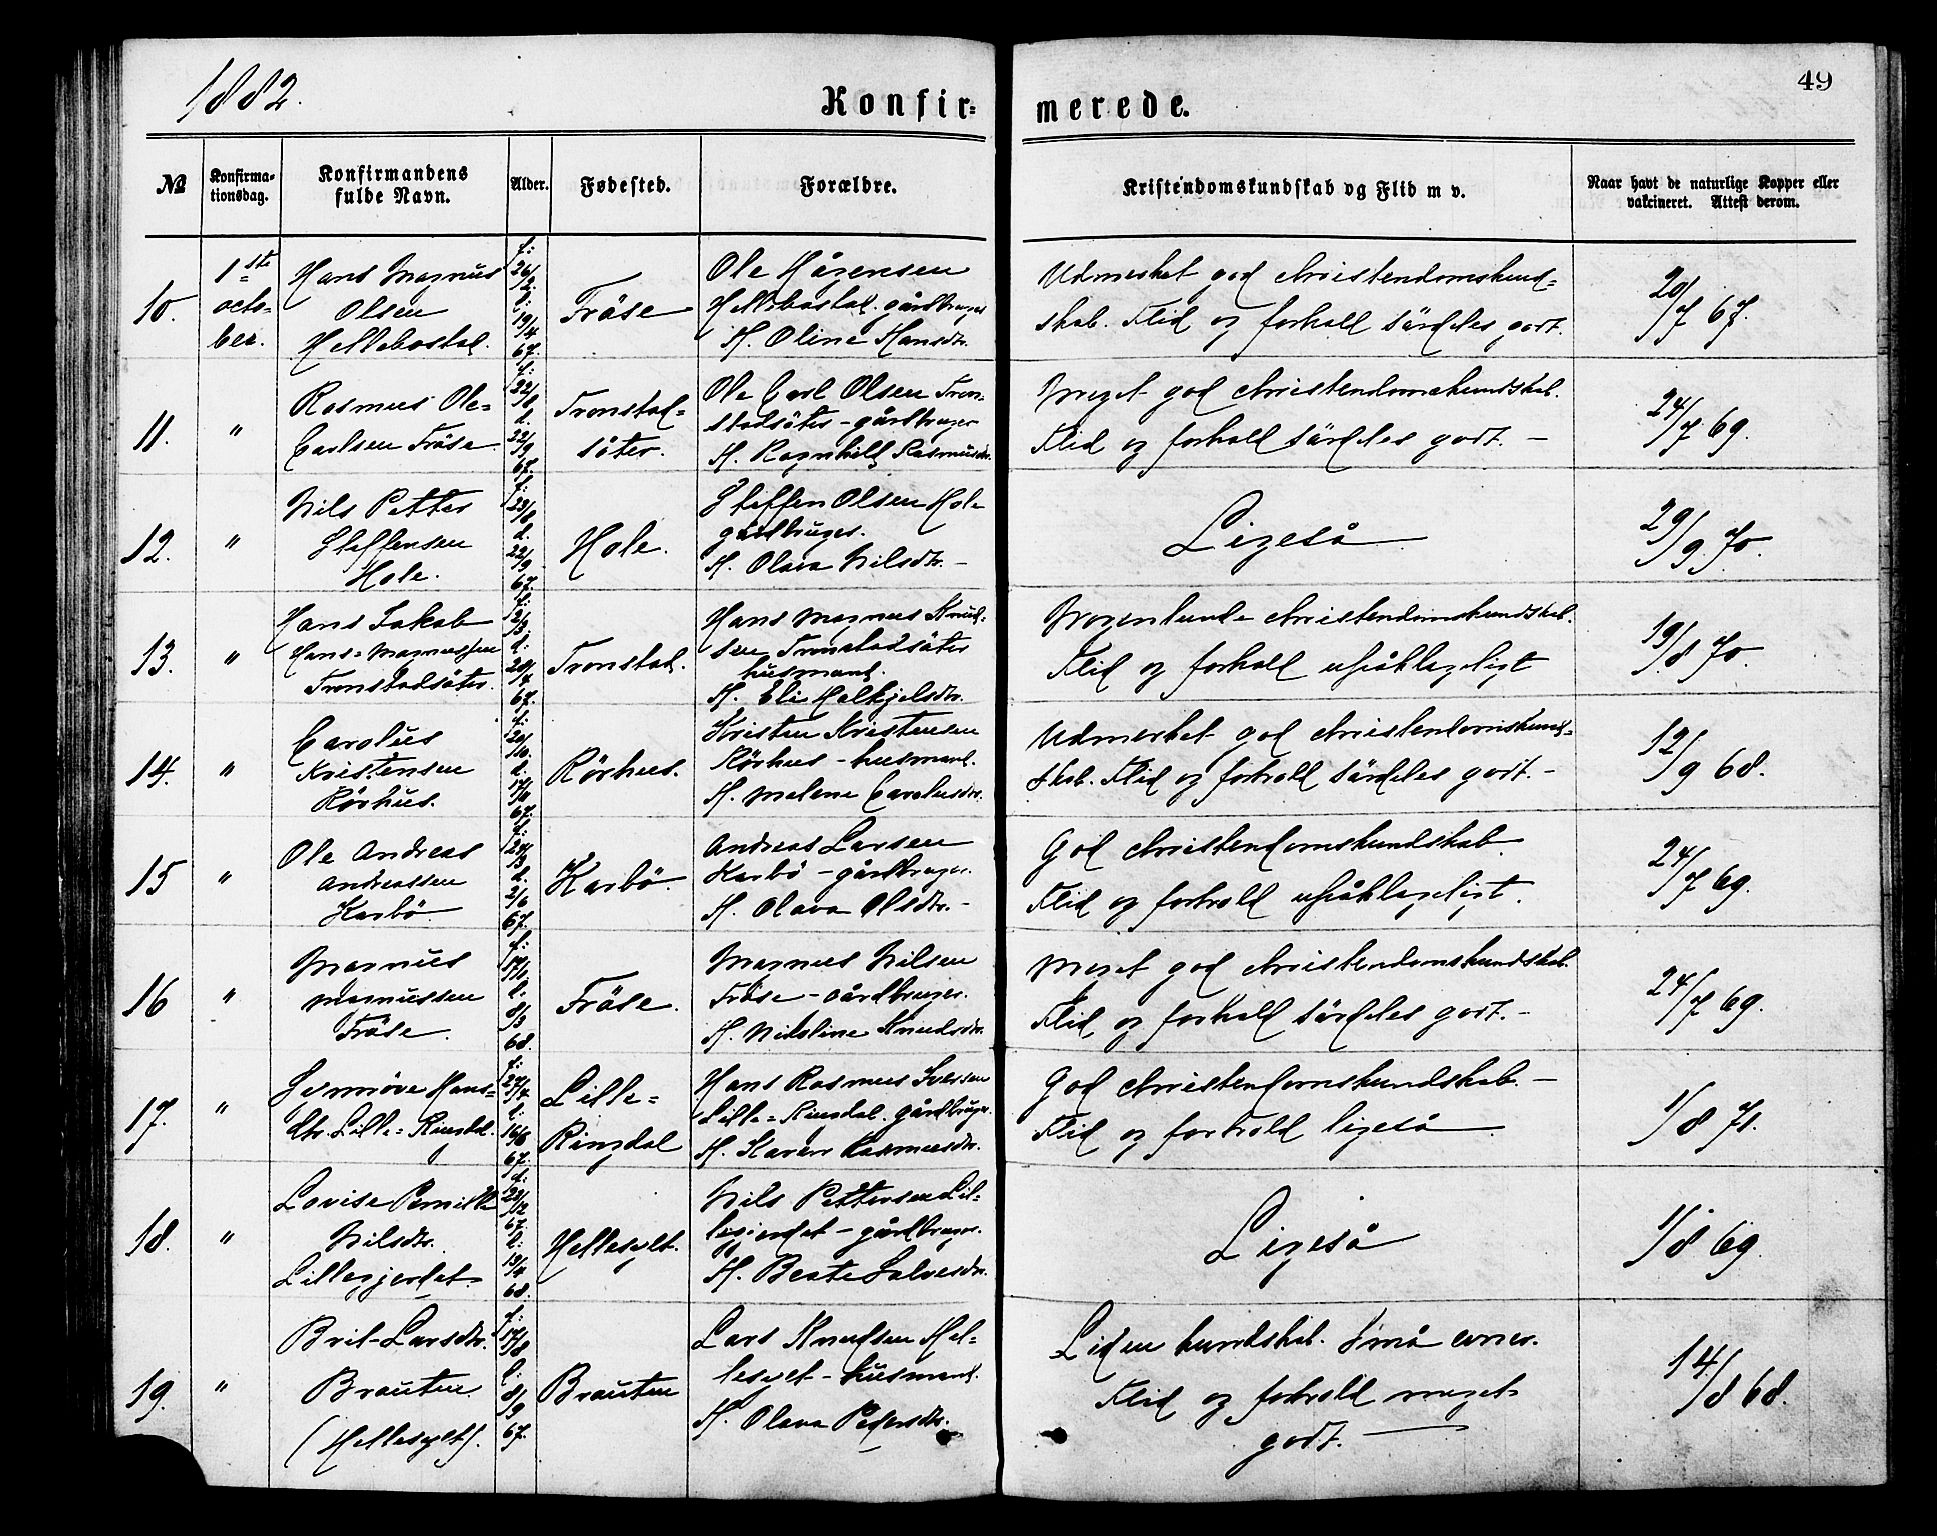 1882.
Konfir-
merede.
49
№
Konfirma-
tionsdag.
Konfirmandens
fulde Navn.
Alder.
Fødested.
Forældre.
Kristendomskundskab og Flid m v.
Naar havt de naturlige Kopper eller
vakcineret. Attest derom.
10.
1ste
octo-
ber.
Hans Magnus
Olsen
Hellebostad.
f:
26/2.
d:
19/4
67.
Fråse
Ole
Hellebostad. gårdbruger
H. Oline Hansdtr.
Udmerket god christendomskund-
skab. Flid og forhold særdeles godt.
20/7 67.
11.
"
Rasmus Ole-
Carlsen Fråse.
f:
22/8
d.
22/9
67.
Tronstad-
säter.
Ole Carl Olsen Tron-
stadsäter - gårdbruger
H. Ragnhild Rasmusdtr.
Meget god christendomskundskab.
Flid og forhold særdeles godt. -
24/7 69.
12.
"
Nils Petter
Steffensen
Hole.
f:
23/8
d.
22/9
67.
Hole.
Steffen Olsen Hole
gårdbruger.
H. Olava Nilsdtr. -
Ligeså
29/9 70.
13.
"
Hans Jakob
Hans-Magnussen
Tronstadsäter.
f:
12/3
d.
28/4
67.
Tronstad.
Hans Magnus Knud-
sen Tronstadsäter
husmand.
H. Eli Helkjelsdtr.
Nogenlunde christendomskundskab.
Flid og forhold upåklageligt
19/8 70.
14.
"
Carolus
Kristensen
Rörhus.
f:
20/10
d.
67.
Rörhus.
Kristen Kristensen
Rörhus - husmand.
H. Malene Carolusdtr.
Udmerket god christendomskund-
skab. Flid og forhold særdeles godt. -
12/9 68.
15
"
Ole Andreas
Andreassen
Karbö
f:
24/3
d.
2/6
67.
Karbö.
Andreas Larsen
Karbö - gårdbruger.
H. Olava Olsdtr. -
God christendomskundskab.
Flid og forhold upåklageligt.
24/7 69.
16
"
Magnus
Magnussen
Fråse.
f:
17/1
d.
8/3
68.
Fråse.
Magnus Nilsen
Fråse - gårdbruger.
H. Nikoline Knudsdtr.
Meget god christendomskundskab.
Flid og forhold særdeles godt. -
24/7 69.
17.
"
Synnöve Hans-
dtr. Lille-Ringdal.
f:
27/4
d.
16/6
67.
Lille-
Ringdal
Hans Rasmus Iversen
Lille-Ringdal. gårdbruger.
H. Karen Rasmusdtr.
God christendomskundskab. -
Flid og forhold ligeså
1/8 71.
18.
"
Lovise Pernille
Nilsdtr.
Lillegjerdet.
f:
22/12
67.
d:
13/4
68.
Hellesylt.
Nils Pettersen Lil-
legjerdet - gårdbruger.
H. Beate Salvesdtr.
Ligeså
1/8 69.
19.
"
Brit-Larsdtr.
Brauten
(Hellesylt).
f:
17/8
d.
8/9
67.
Brauten
Lars Knudsen Hel-
lesylt - husmand.
H. Olava Pedersdtr.
Liden kundskab. Små evner.
Flid og forhold meget
godt.
14/8 68.